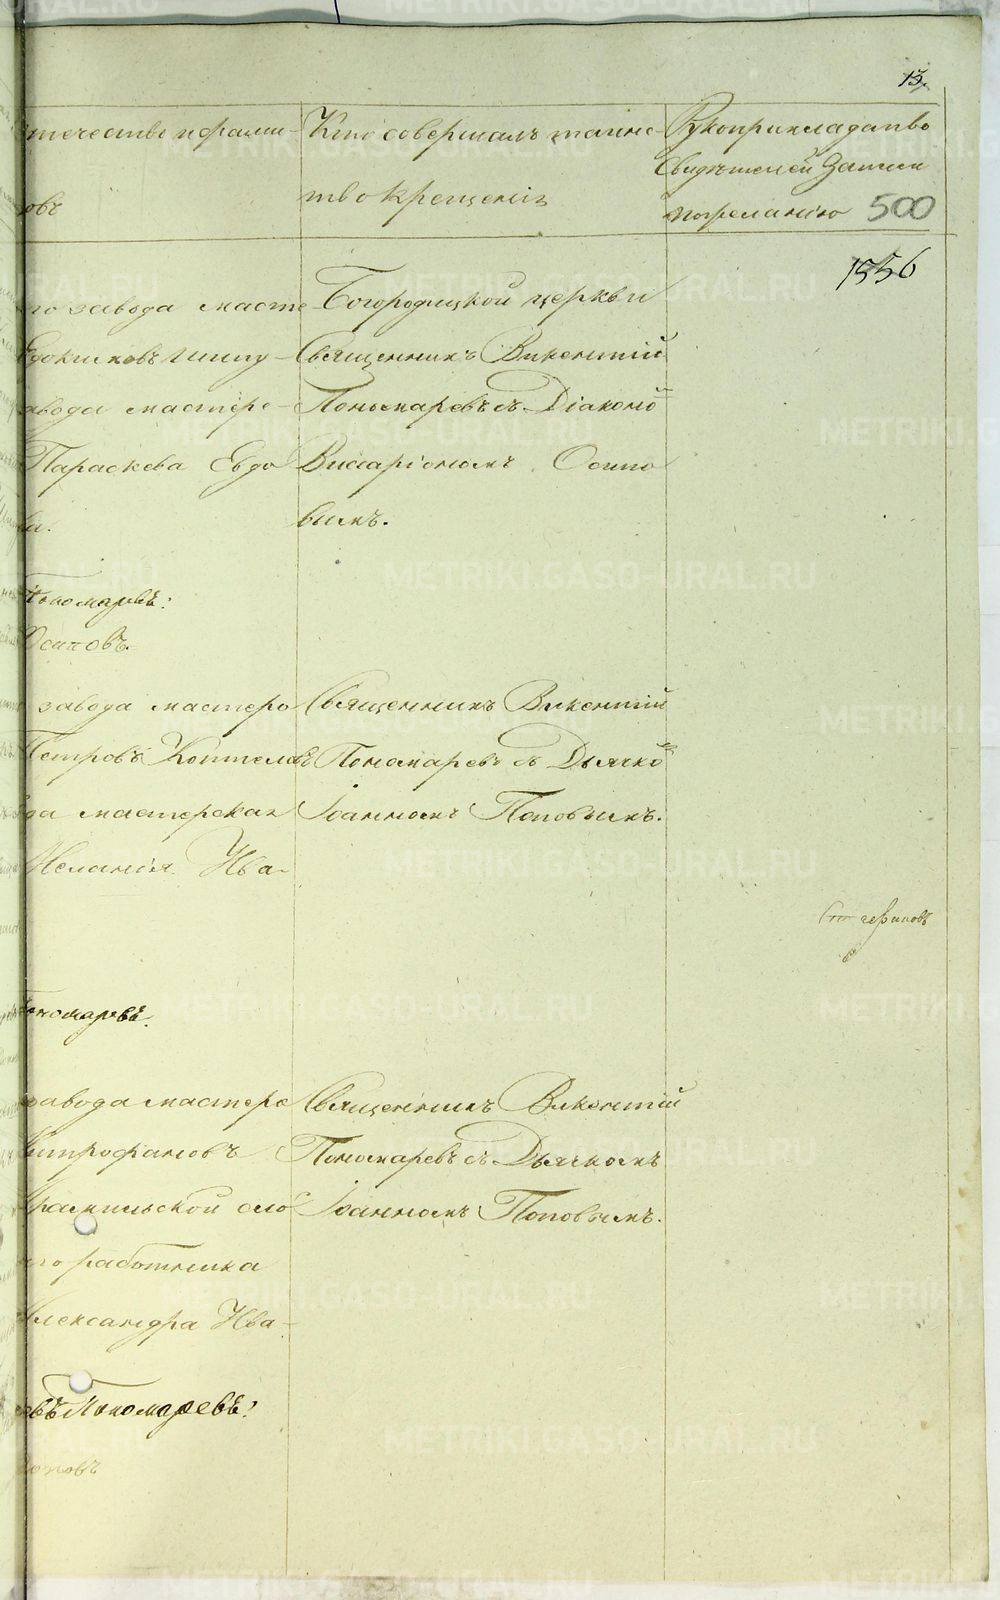 13.
течествѣ и фами-
овъ
Кто совершалъ таинс-
тво крещенія
Рукоприкладство
свидѣтелей записи
по желанію 500
1556
го завода масте
Евдокимовъ
завода мастерс-
Параскева Евдо
ва.
Богородицкой церкви
Священникъ Викентій
Пономаревъ съ Діаконо
Виссаріономъ Осипо
вымъ.
Пономаревъ.
Осиповъ.
завода мастеро
Петровъ Коптеловъ
да мастерская
Меланія Ива-
Священникъ Викентій
Пономаревъ съ Дьячко
Іоанномъ Поповымъ.
Пономаревъ.
завода мастерс
Митрофановъ
Арамильской сло
го работника
Александра Ива-
Священникъ Викентій
Пономаревъ съ Дьячкомъ
Іоанномъ Поповымъ.
Пономаревъ.
Поповъ
METRIKI.GASO-URAL.RU